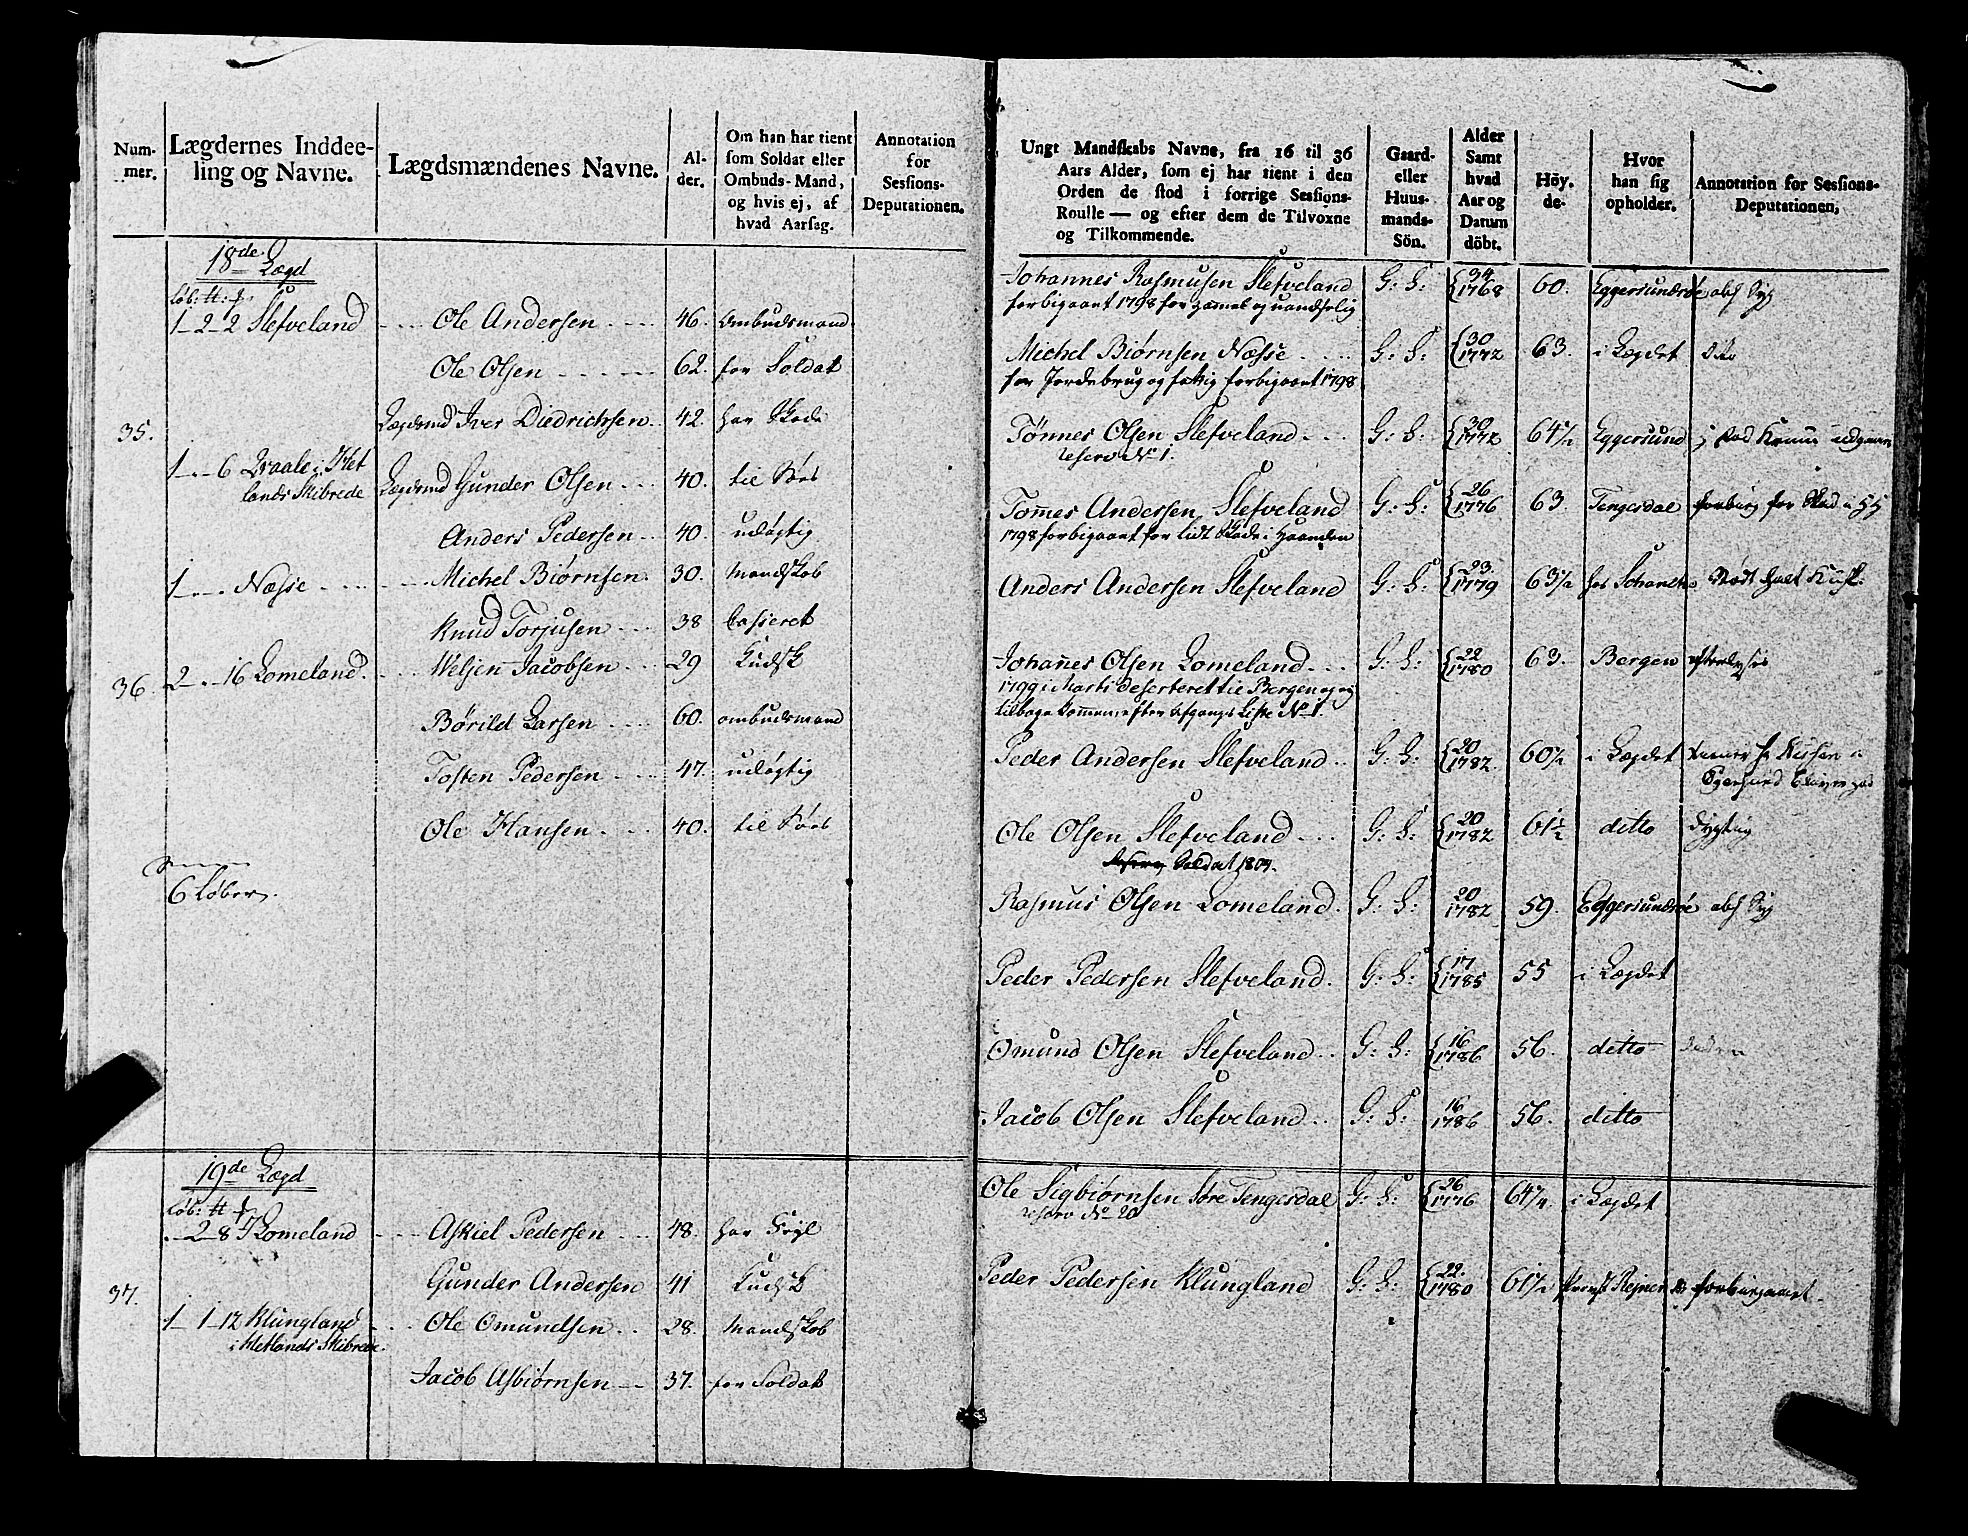 Num-
mer.
Lægdernes Inddee-
ling og Navne.
Lægdsmændenes Navne.
Al-
der.
Om han har tient
som Soldat eller
Ombuds-Mand,
og hvis ej, af
hvad Aarsag.
Annotation
for
Sessions-
Deputationen.
18de Lægd
Løb: H: f:
1_2_2 Slefveland
Ole Andersen
46. Ombudsmand
Ole Olsen
62. for Soldat
Lægdsmd Iver Diedrichsen
42. har Skade
35.
1_._6 i Het
lands Skibrede
Lægdsmd Gunder Olsen
40. til
Anders Pedersen
40. udøgtig
1_._. Næsse
Michel Biørnsen
30. Mandskab
Knud Torjusen
38 Casseret
36.
2_._16 Lomeland
Weljen Jacobsen
29 Kudsk
Børild Larsen
60. ombudsmand
Tosten Pedersen
47. udøgtig
Ole Hansen
40. til
6 Løber
19de Lægd
Løb: H: f:
._2_8 Lomeland
Askiel Pedersen
48. har
Gunder Andersen
41 Kudsk
37.
1_1_12 Klungland
i Hetlands Skibrede
Ole Omundsen
28. Mandskab
Jacob Asbiørnsen
37. for Soldat
Ungt Mandskabs Navne, fra 16 til 36
Aars Alder, som ej har tient i den
Orden de stod i forrige Sessions-
Roulle — og efter dem de Tilvoxne
og Tilkommende.
Gaard-
eller
Huus-
mands-
Sön.
Alder
Samt
hvad
Aar og
Datum
döbt.
Höy-
de-
Hvor
han sig
opholder.
Annotation for Sessions-
Deputationen,
Johannes Rasmusen Slefveland G: S: {34 1768 60. Eggersundsøe
forbigaaet 1798 for gammel og uandselig
Michel Biørnsen Næsse G: S: {30 1772 63. i Lægdet
for Jordebrug og fattig forbigaaet 1798
Tønnes Olsen Slefveland G: S: {30 1772 64½ Eggersund
reserv No 1.
Tomes Andersen Slefveland G: S: {26 1776 63. Tengesdal
1798 forbigaaet for lidt Skade i Haanden
Anders Andersen Slefveland G: S: {23. 1779 63½
Johannes Olsen Lomeland G: S: {22 1780 63. Bergen efterlyses
1799 i Marti deserteret til Bergen og ej
tilbage kommen, efter afgangs Liste No 1.
Peder Andersen Slefveland G: S: {20 1782 60½ i Lægdet
Ole Olsen Slefveland G: S: {20 1782 61½ ditto dygtig
Soldat 1804.
Rasmus Olsen Lomeland G: S: 20 1782 59. Eggersundsøe
Peder Pedersen Slefveland G: S: {17 1785 55 i Lægdet
Omund Olsen Slefveland G: S: {16 1786 56. ditto
Jacob Olsen Slefveland G: S: 16 1786 56. ditto
Ole Sigbiørnsen Søre Tengesdal G: S: {26 1776 64¼ i Lægdet
reserv No 20
Peder Pedersen Klungland G: S: {22. 1780 61½ forbigaaet